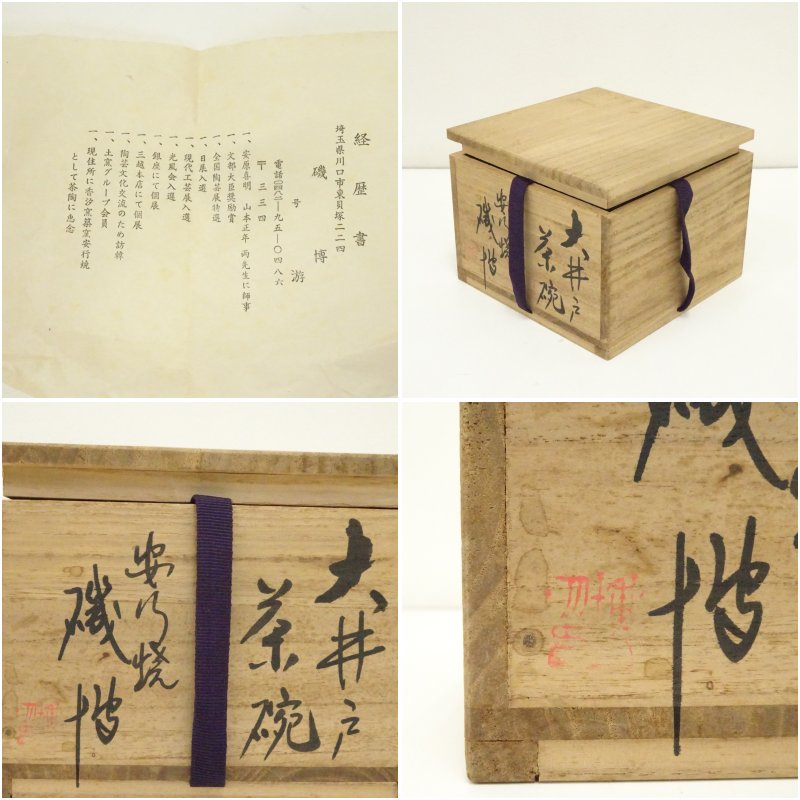 経歴書
埼玉県川口市東貝塚二二四
磯博
号 游
電話(〇四八二)―九五―〇四八六
〒 三三四
一、安原喜明 山本正年 両先生に師事
一、文部大臣奨励賞
一、全国陶芸展特選
一、日展入選
一、現代工芸展入選
一、光風会入選
一、銀座にて個展
一、三越本店にて個展
一、陶芸文化交流のため訪韓
一、土窯グループ会員
一、現住所に香汐窯築窯安行焼
として茶陶に専念
大井戸
茶碗
安行焼
磯博
大井戸
茶碗
安行焼
磯博
磯
博